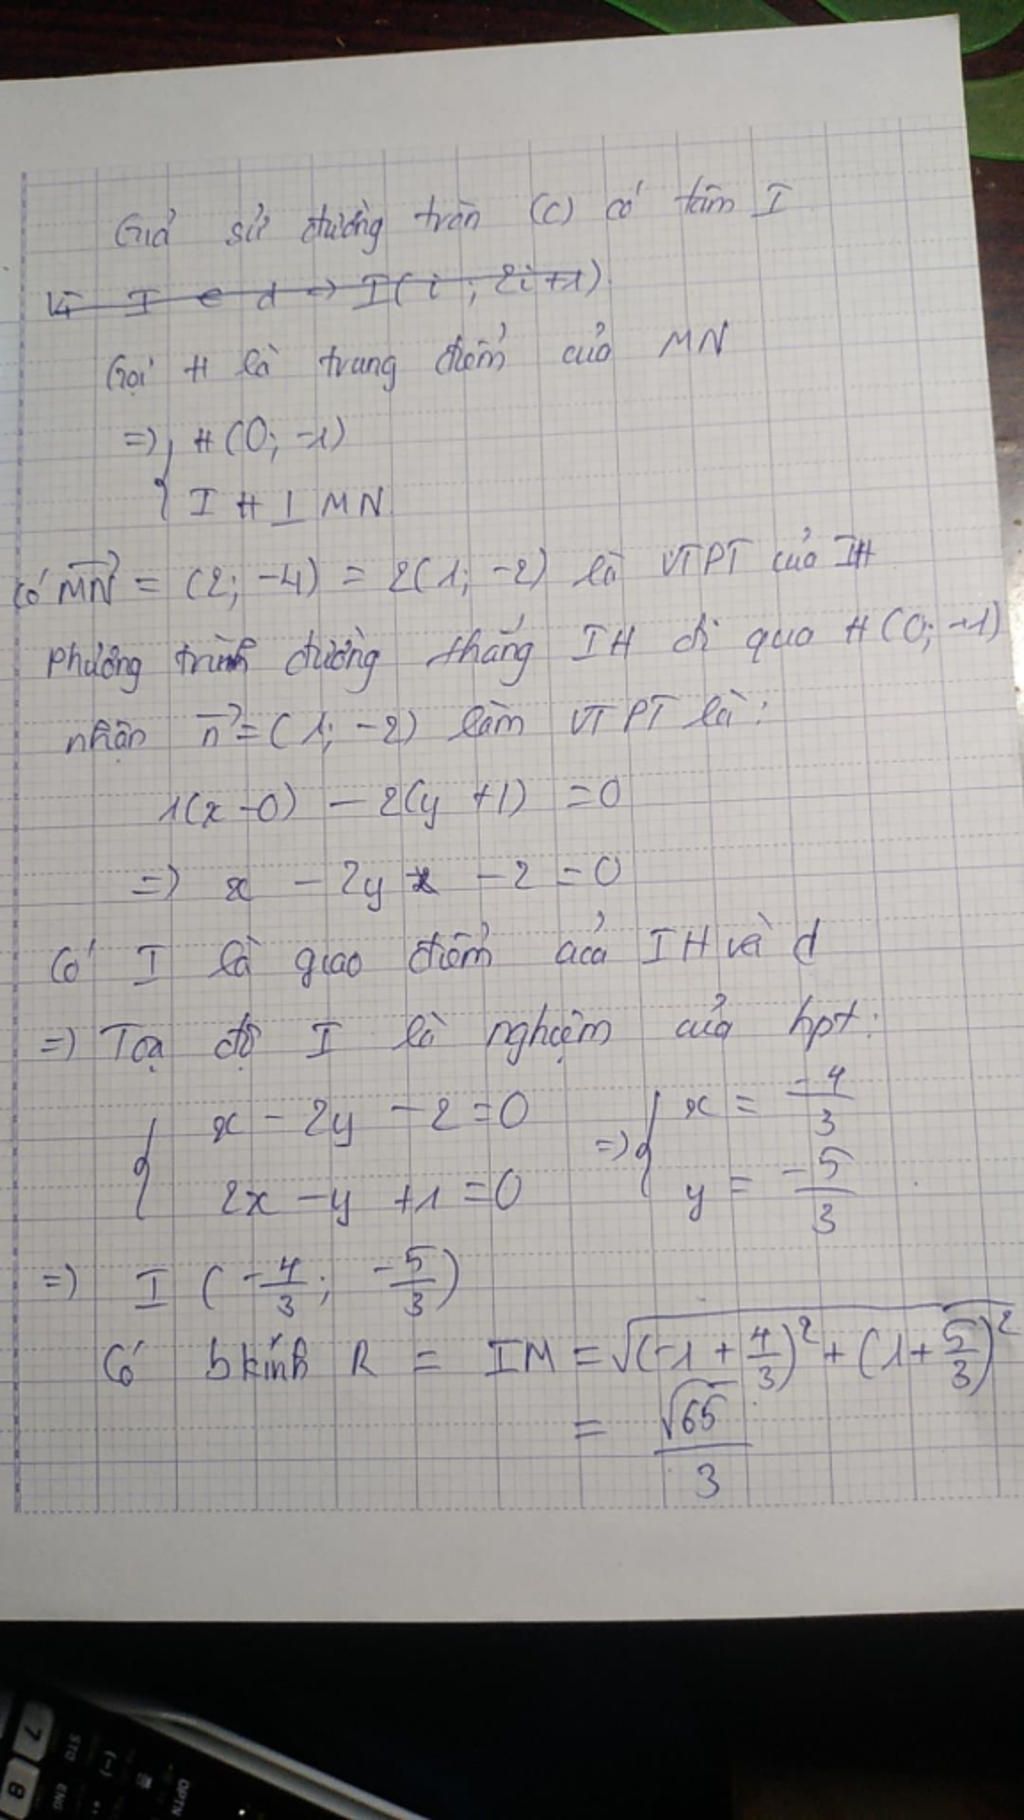 Giả sử đường tròn (C) có tâm I
Vì I ∈ d => I(i; 2i+1)
Gọi H là trung điểm của MN
=> { H(0; -1)
I H ⊥ MN
Có MN→ = (2; -4) = 2(1; -2) là VTPT của IH
Phương trình đường thẳng IH đi qua H(0; -1)
nhận n→ = (1; -2) làm VTPT là:
1(x-0) - 2(y+1) = 0
=> x - 2y - 2 = 0
Có I là giao điểm của IH và d
=> Tọa độ I là nghiệm của hpt:
{ x - 2y - 2 = 0 => { x = -4/3
2x - y + 1 = 0 y = -5/3
=> I (-4/3; -5/3)
Có bkính R = IM = √((-1 + 4/3)² + (1 + 5/3)²)
= √65/3
7 STO (-) OPTN
8 ENG